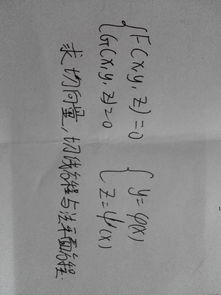 {F(x,y,z)=0
G(x,y,z)=0
{y=φ(x)
z=ψ(x)
求切向量,切线方程与法平面方程.